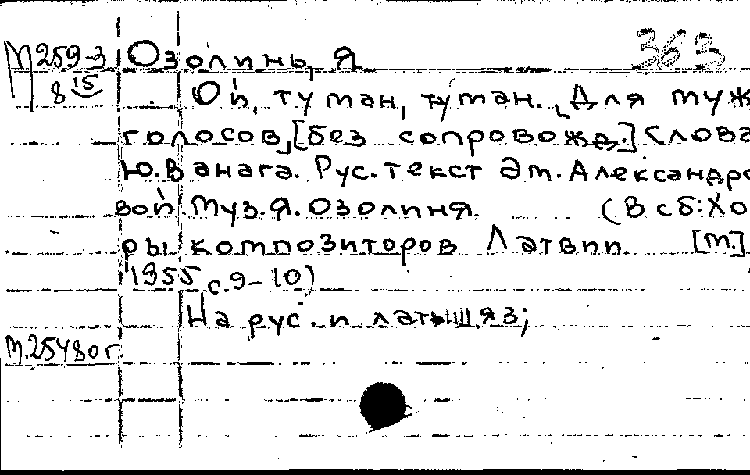 М259-3 Озолинь, Я. 363
8 15 Ой, туман, туман. Для муж
голосов, [без сопровожд.] Слова
Ю. Ванага. Рус. текст Эм. Александро
вой Муз. Я. Озолиня. (В сб: Хо
ры композиторов Латвии. [М.]
1955 с. 9-10)
На рус. и латыш. яз;
М.25480г